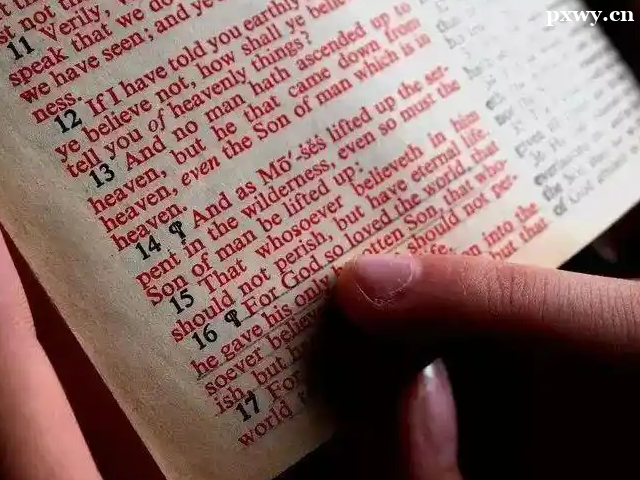 pxwy.cn
st not
11 Verily,
speak that we do
we have seen; and ye
ness.
12 If I have told you earthly
ye believe not, how shall ye belie
tell you of heavenly things?
13 And no man hath ascended up to
heaven, but he that came down from
heaven, even the Son of man which is in
heaven.
14 ¶ And as Mō´-ṣĕṣ lifted up the ser-
pent in the wilderness, even so must the
Son of man be lifted up:
15 That whosoever believeth in him
should not perish, but have eternal life.
16 ¶ For God so loved the world, that
he gave his only otten Son, that who-
soever believe should not per-
ish, but h fe.
17 For on into the
world but that
of God